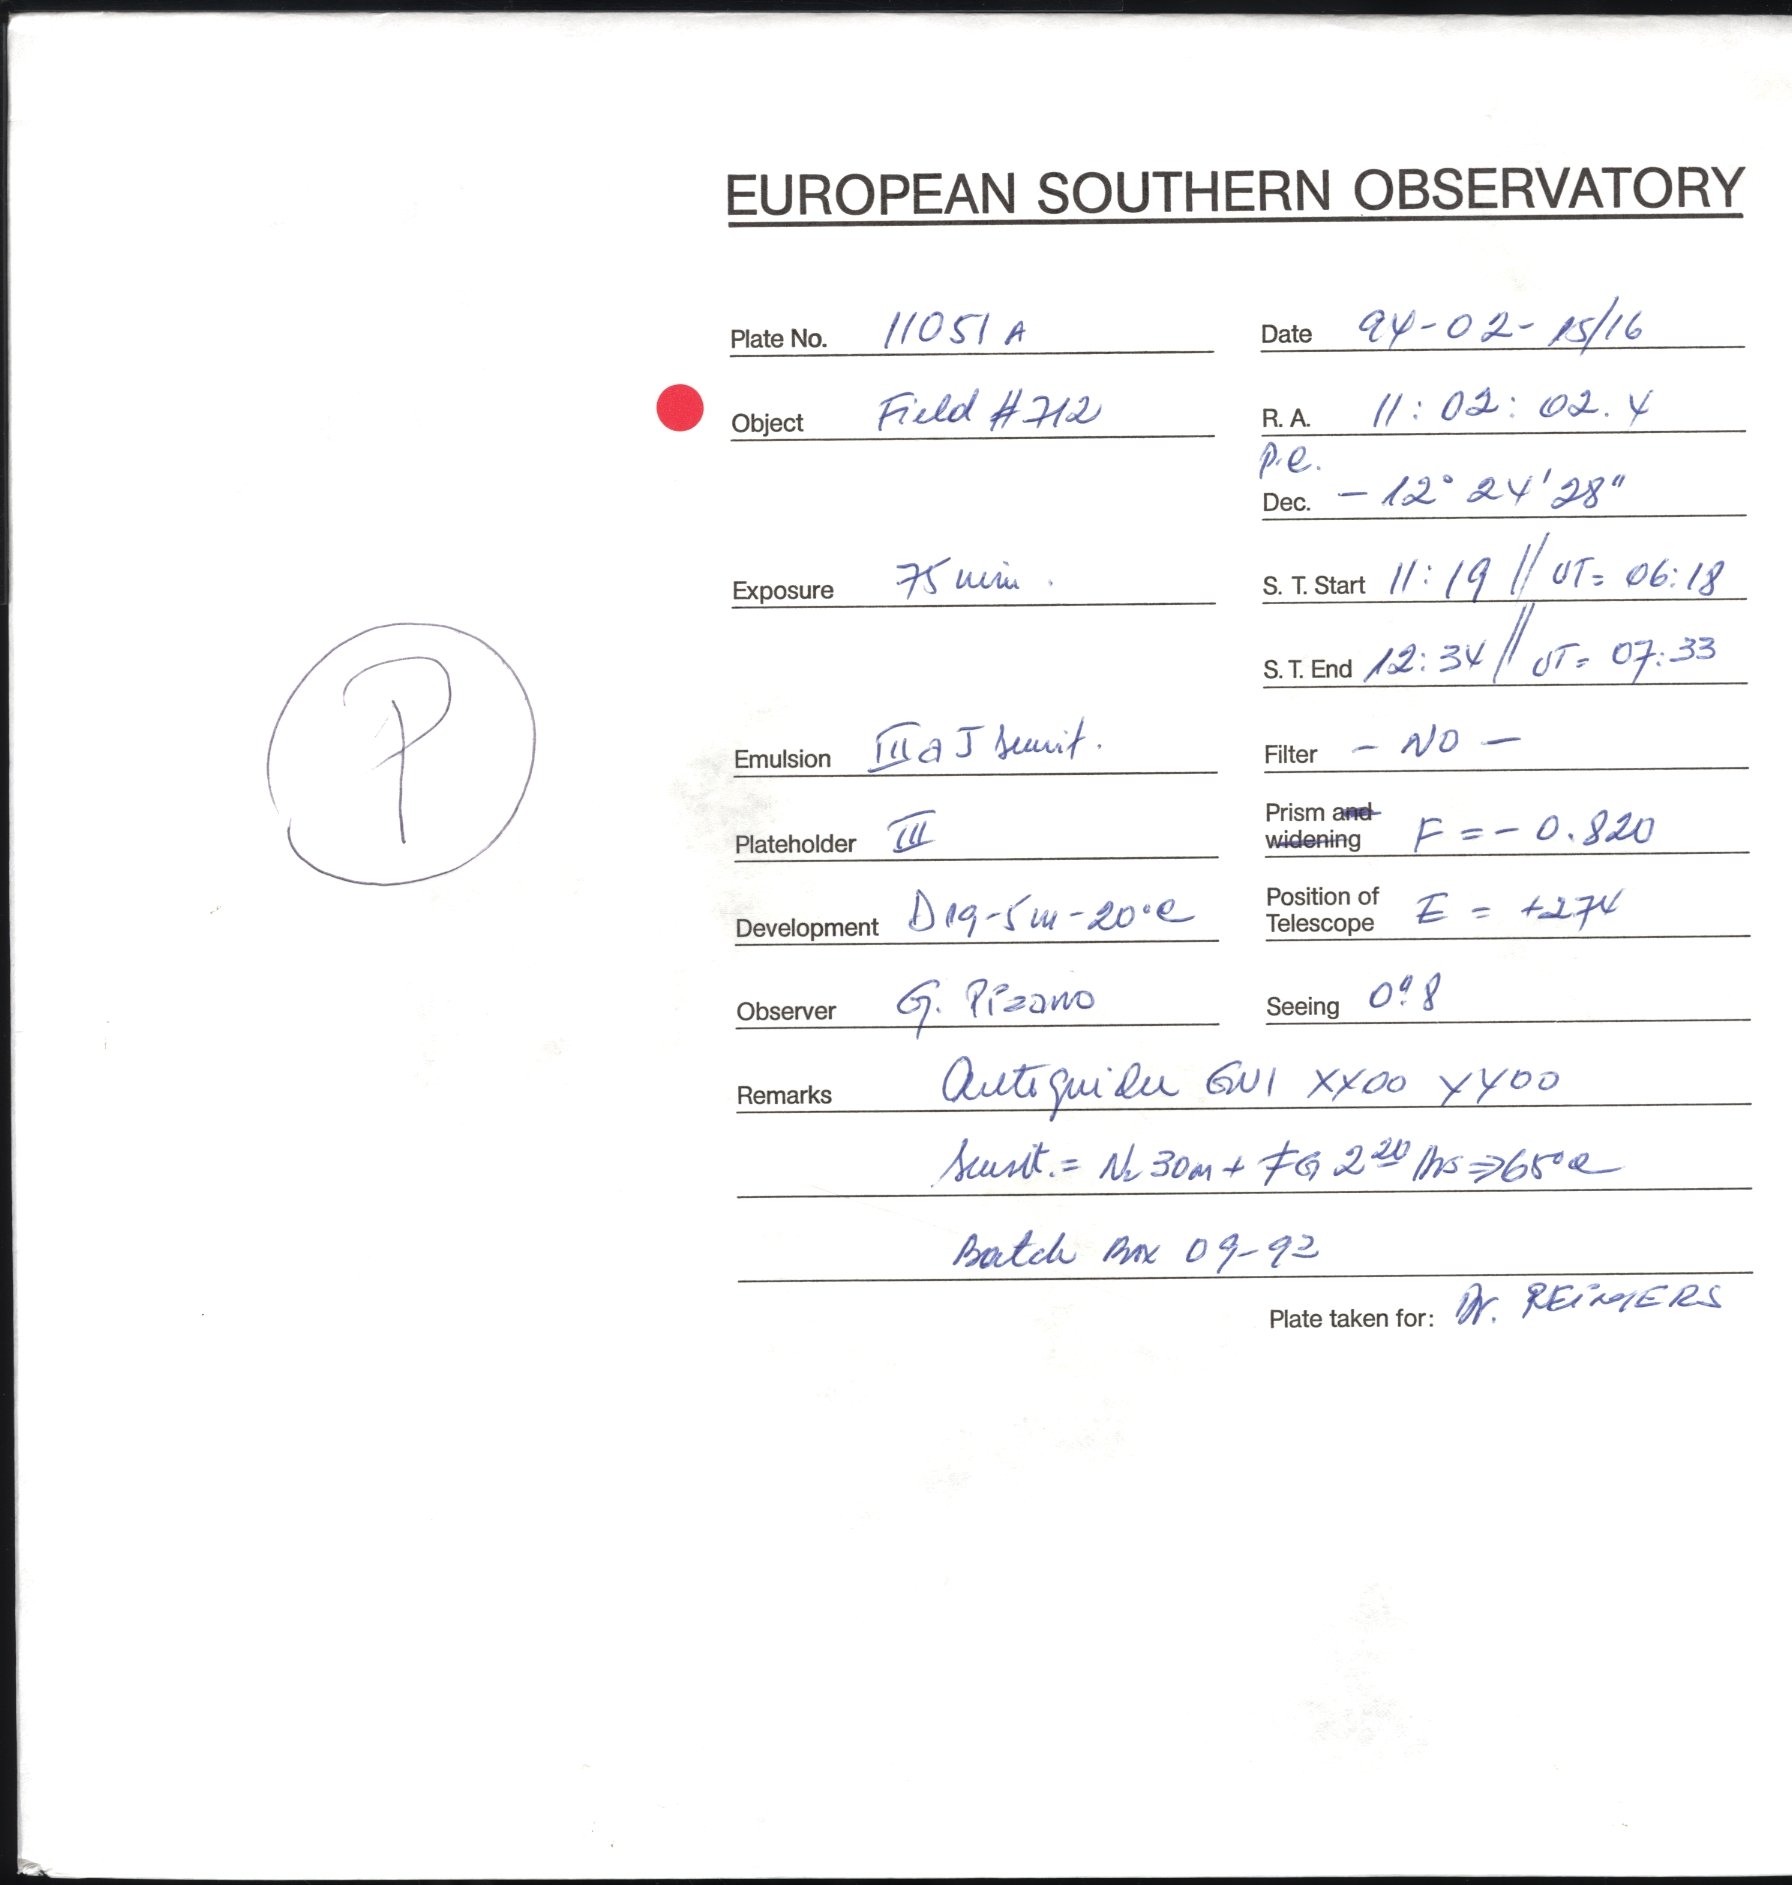 EUROPEAN SOUTHERN OBSERVATORY
Plate No. 11051 A Date 94-02-15/16
Object Field #712 R. A. 11: 02: 02.4
p.e.
Dec. - 12° 24' 28"
Exposure 75 min. S. T. Start 11:19 // UT= 06:18
S. T. End 12:34 // UT= 07:33
Emulsion III a J sensit. Filter - NO -
Plateholder III Prism and widening F = - 0.820
Development D19-5m-20°C Position of Telescope E = +274
Observer G. Pizarro Seeing 0".8
Remarks Autoguider GN1 XX00 YY00
Sensit.= N2 30m + FG 2 20 hrs => 65°C
Batch Box 09-92
Plate taken for: Dr. REIMERS
P